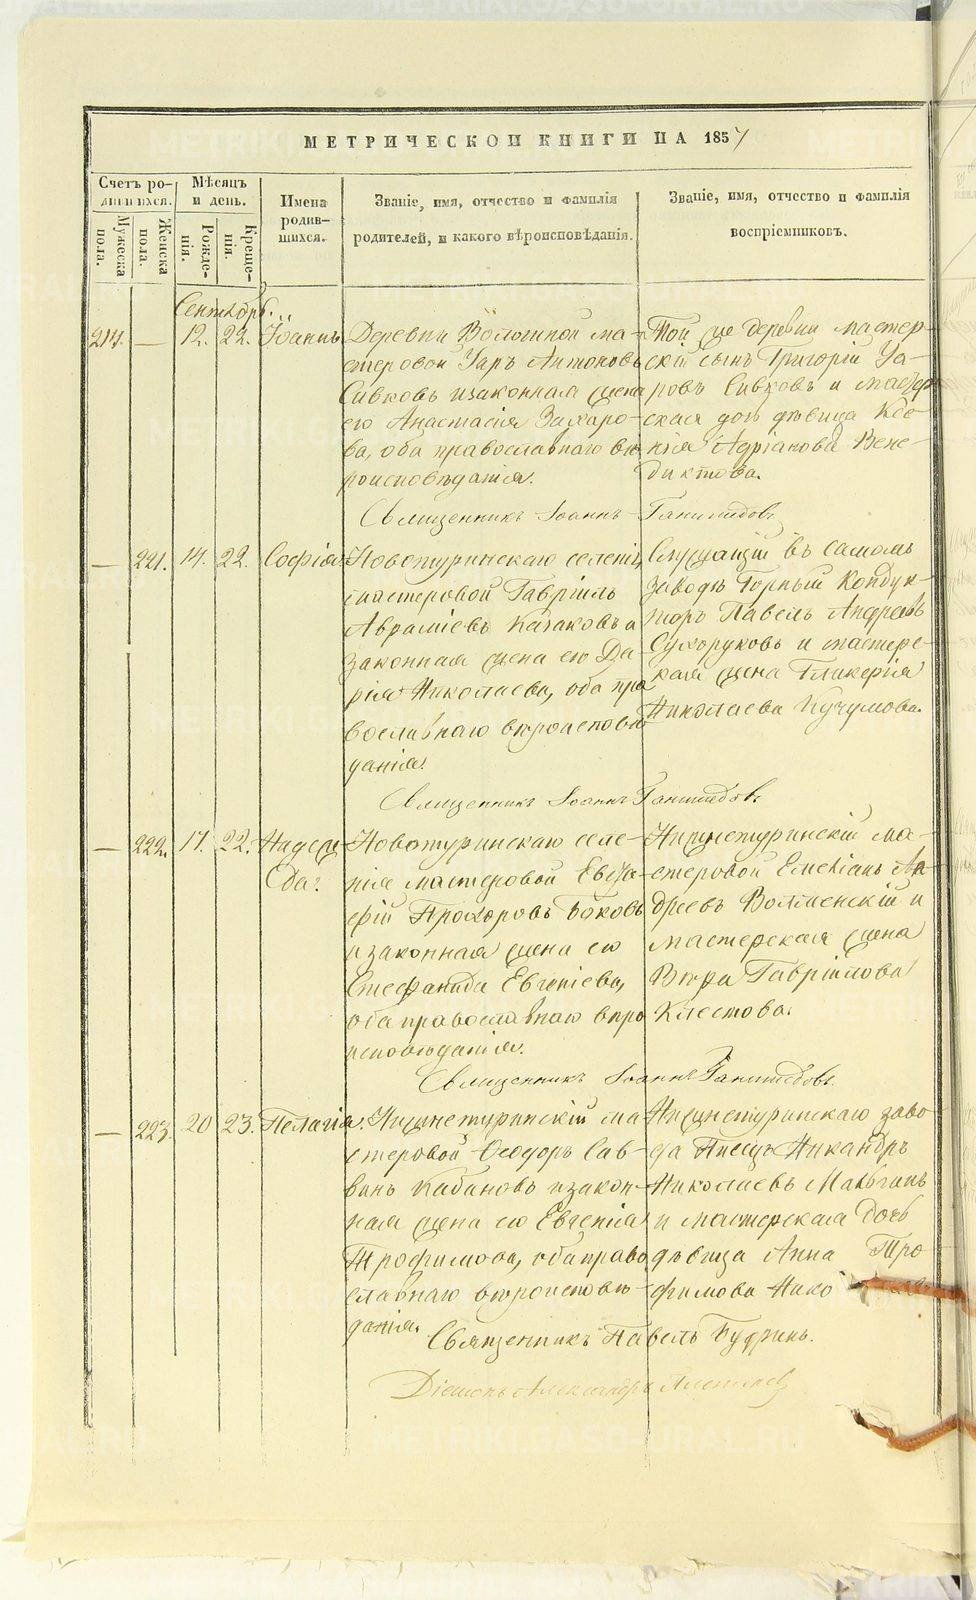 МЕТРИЧЕСКОЙ КНИГИ НА 1857
Счетъ родившихся.
Мужеска пола.
Женска пола.
Мѣсяцъ и день.
Рожденія.
Крещенія.
Имена родившихся.
Званіе, имя, отчество и фамилія
родителей, и какого вѣроисповѣданія.
Званіе, имя, отчество и фамилія
воспріемниковъ.
Сентябрь.
— 12. 22. Іоаннъ
Деревни ма-
стеровой Уаръ Антоновъ
Сивковъ и законная жена
его Анастасія Захаро-
ва, оба православнаго вѣ-
роисповѣданія.
Той же деревни мастер-
скій сынъ Григорій Уа-
ровъ Сивковъ и мастер-
ская дочь дѣвица Ксе-
нія Адріанова Вене-
диктова.
Священникъ Іоаннъ
— 221. 14. 22. Софія
Новотуринскаго селенія
мастеровой Гавріилъ
Авраміевъ Казаковъ и
законная жена его Да-
рія Николаева, оба пра-
вославнаго вѣроисповѣ-
данія.
Служащій въ самомъ
заводѣ Горный Кондук-
торъ Павелъ Андреевъ
Сухоруковъ и мастерс-
кая жена Гликерія
Николаева Кучумова.
Священникъ Іоаннъ
— 222. 17. 22. Надеж-
да.
Новотуринскаго селе-
нія мастеровой Евста-
фій Прохоровъ Боковъ
и законная жена его
Стефанида Евгеніева,
оба православнаго вѣро-
исповѣданія.
Нижнетуринскій ма-
стеровой Емеліанъ Ан-
дреевъ и
мастерская жена
Вѣра Гавріилова
Клестова.
Священникъ Іоаннъ
— 223. 20 23. Пелагія.
Нижнетуринскій ма-
стеровой Ѳеодоръ Сав-
винъ Кабановъ и закон-
ная жена его Евгенія
Трофимова, оба право-
славнаго вѣроисповѣ-
данія.
Нижнетуринскаго заво-
да Писецъ Никандръ
Николаевъ
и мастерская дочь
дѣвица Анна Тро-
фимова
Священникъ Павелъ Будринъ.
Діаконъ Александръ
METRIKI.GASO-URAL.RU